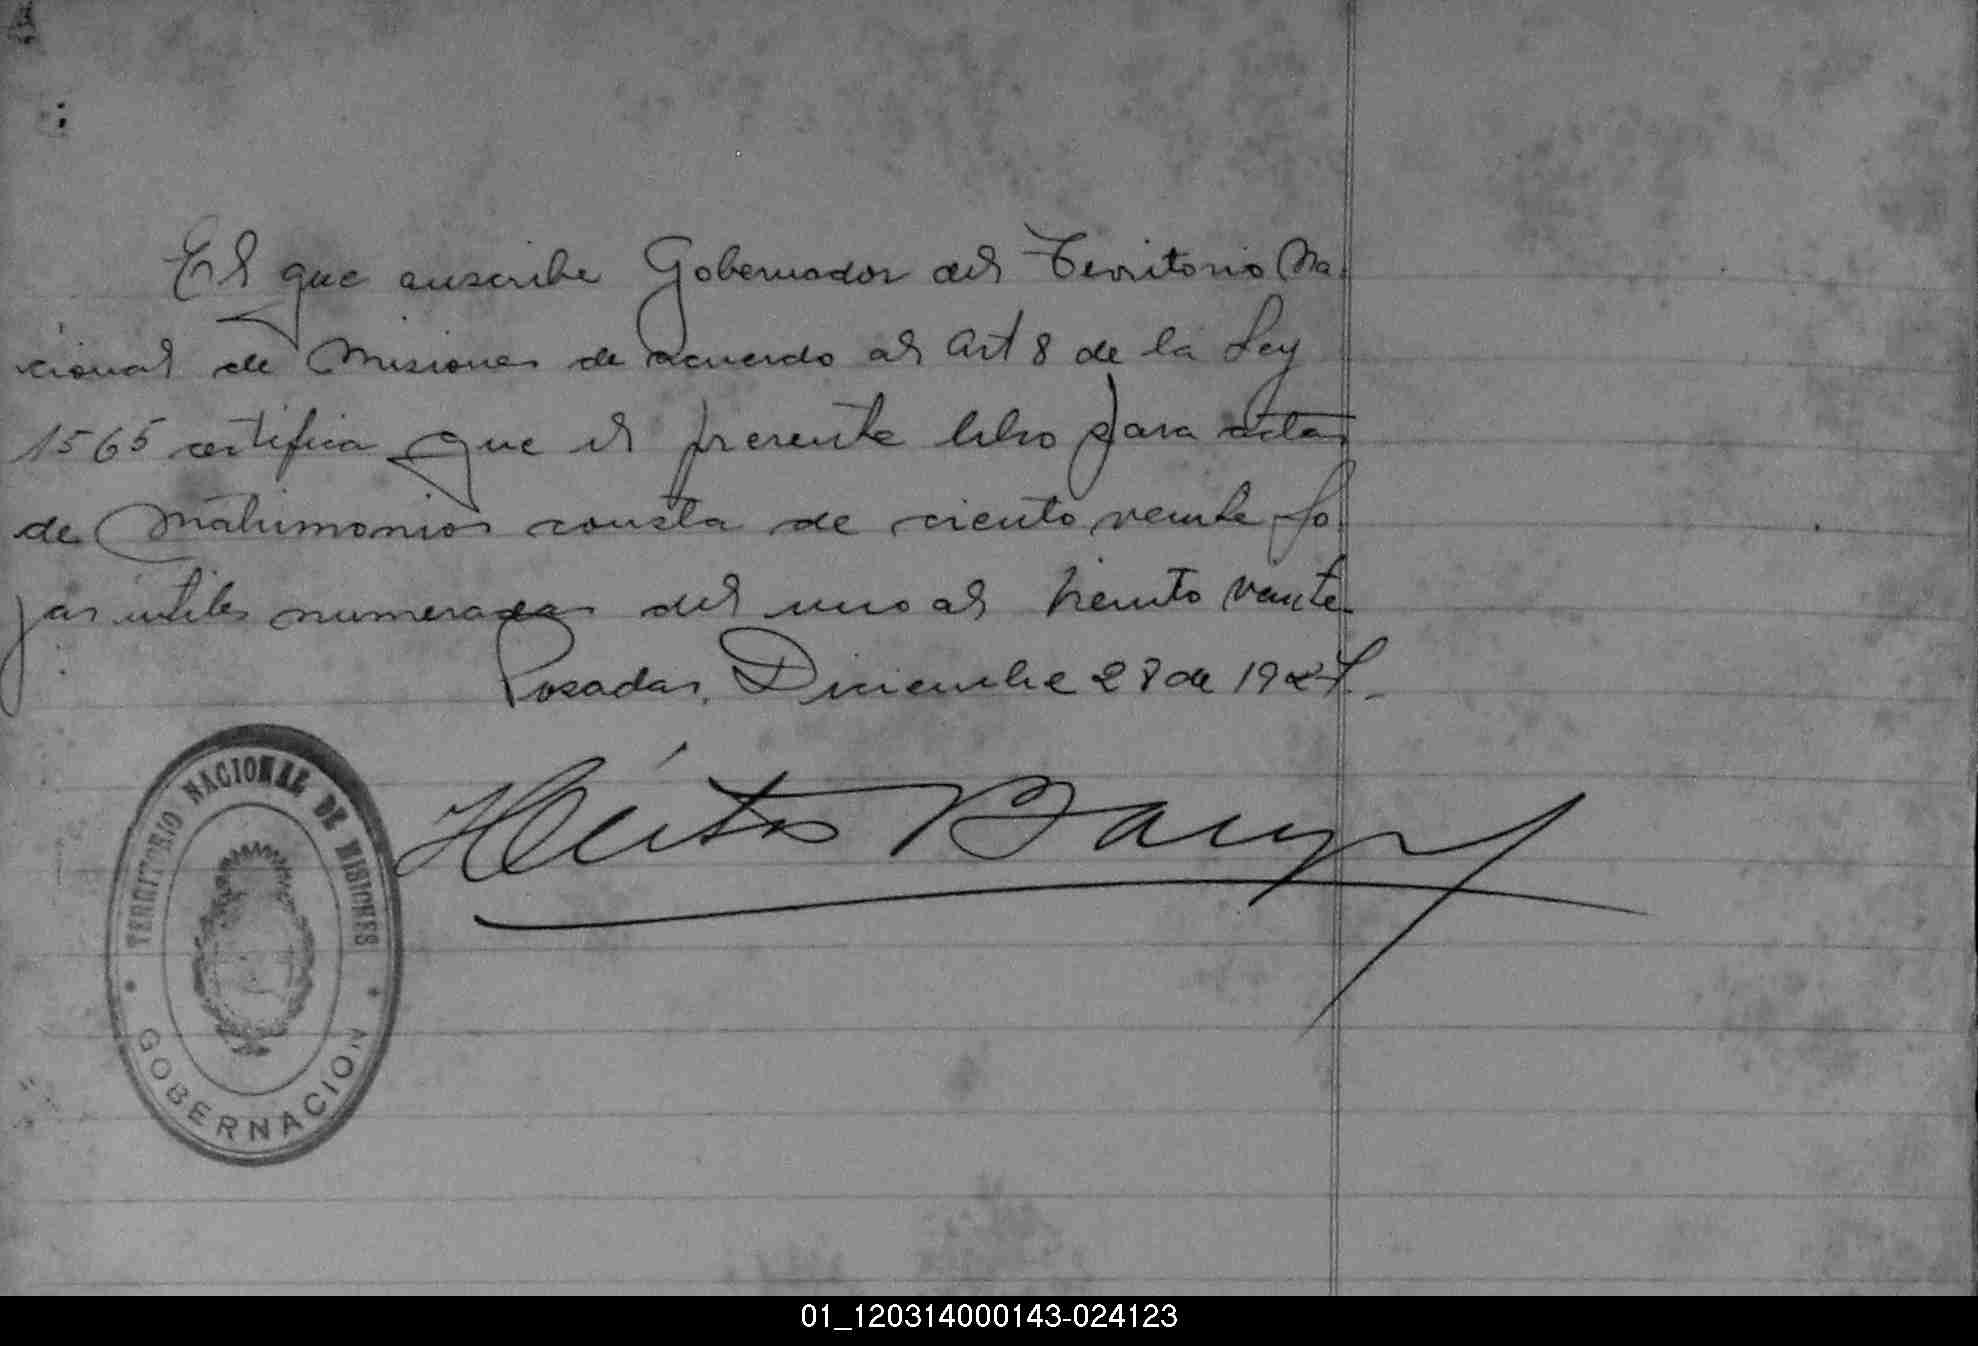 El que suscribe Gobernador del Territorio Na
cional de Misiones de acuerdo al Art 8 de la Ley
1565 certifica que el presente libro para actas
de Matrimonios consta de ciento veinte fo
jas utiles numeradas del uno al ciento veinte
Posadas, Diciembre 28 de 1927.-
Héctor Barreyro
TERRITORIO NACIONAL DE MISIONES
GOBERNACION
01_120314000143-024123